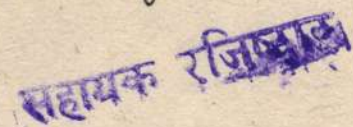 सहायक रजिस्ट्रार